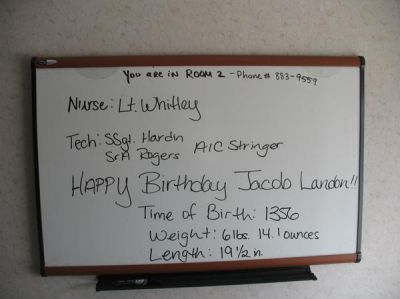 You are in Room 2 - Phone # 883-9559
Nurse: Lt. Whitley
Tech: SSgt. Hardin
SrA Rogers
A1C Stringer
HAPPY Birthday Jacob Landon!!
Time of Birth: 1356
Weight: 6lbs. 14.1 ounces
Length: 19 1/2 in.